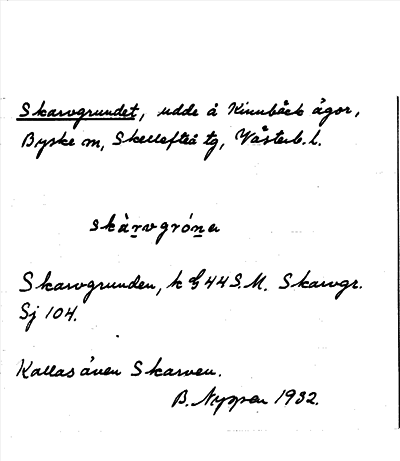 Skarvgrundet, udde å Kinnbäck ägor,
Byske sn, Skellefteå tg, Västerb. l.
skàrvgróna
Skarvgrunden, k 44 S.M. Skarvgr.
Sj 104.
Kallas även Skarven.
B. Nyman 1932.